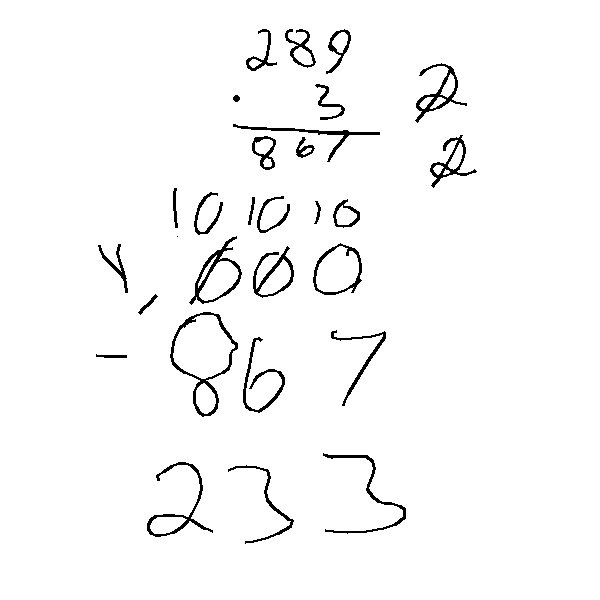 289
· 3 2
867 2
10 10 10
Y, 000
- 867
233